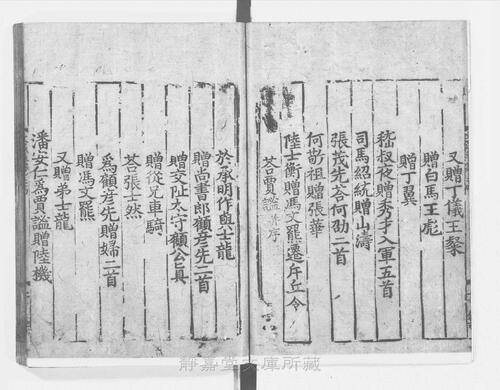 又贈丁儀王粲
贈白馬王彪
贈丁翼
嵇叔夜贈秀才入軍五首
司馬紹統贈山濤
張茂先荅何劭二首
何劭祖贈張華
陸士衡贈馮文羆遷斥丘令
荅賈謐并序
於承明作與士龍
贈尚書郎顧彦先二首
贈交阯太守顧公真
贈從兄車騎
荅張士然
爲顧彦先贈婦二首
贈馮文羆
又贈弟士龍
潘安仁爲賈謐贈陸機
靜嘉堂文庫所藏